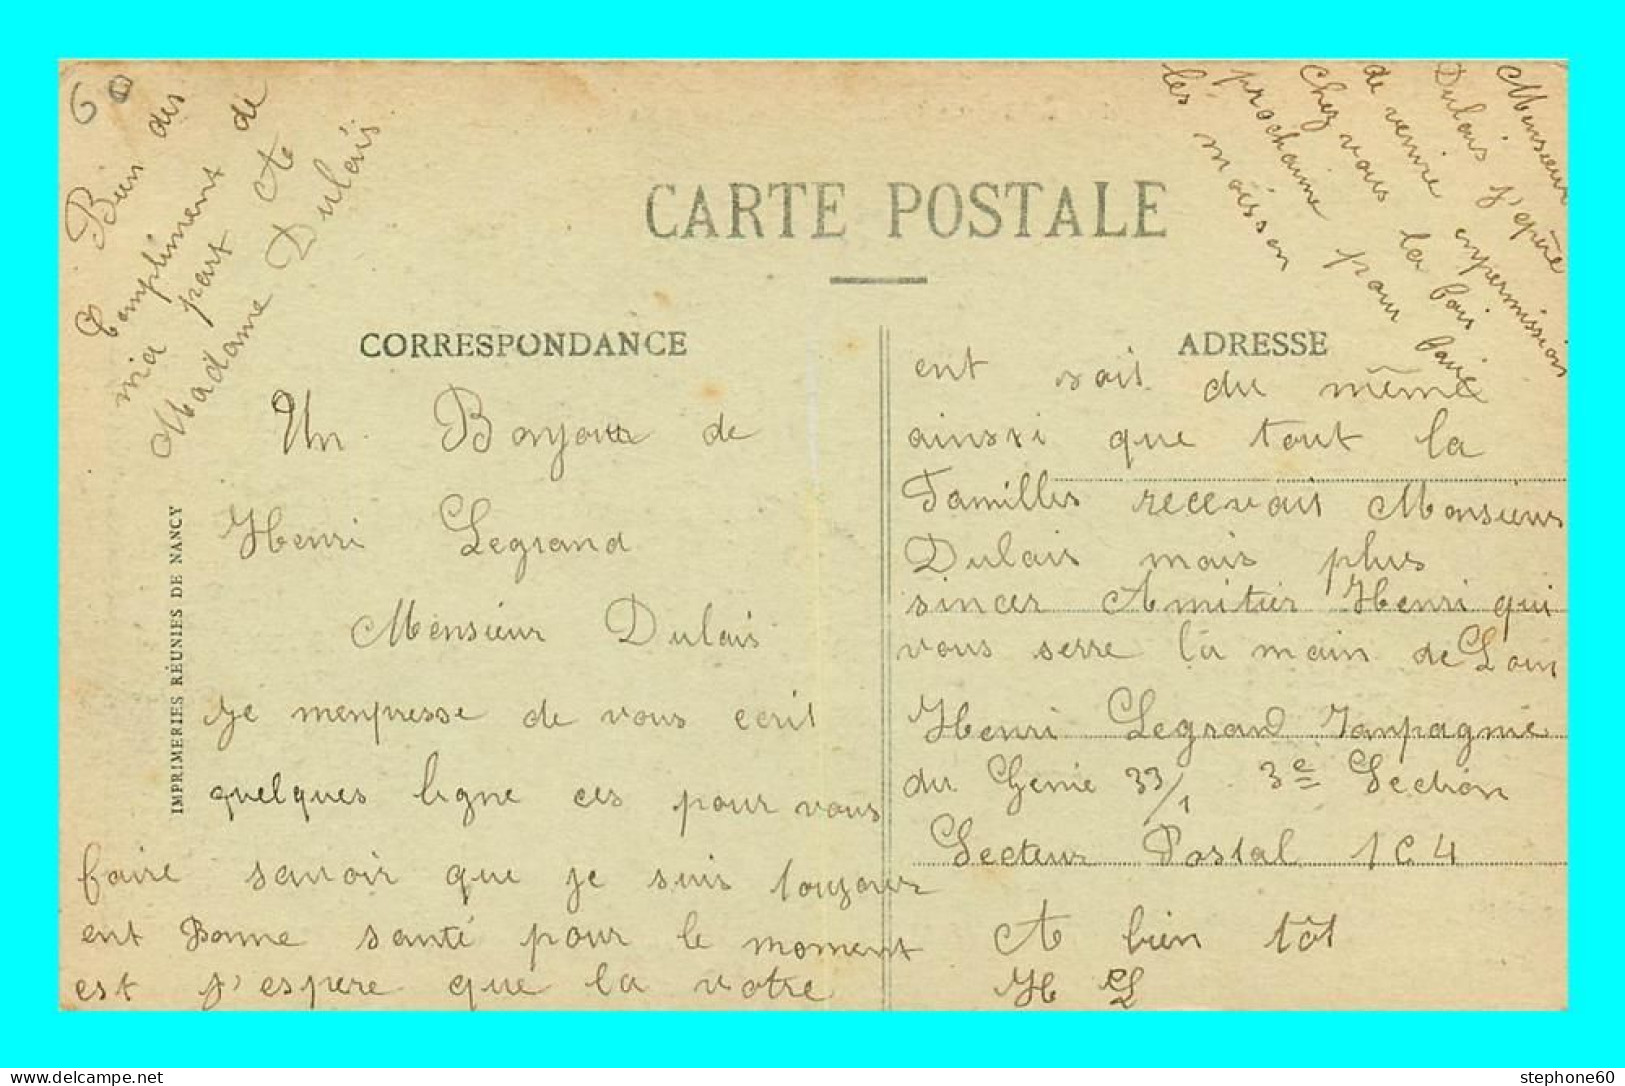 60
Bien des
Compliment de
ma part A
Madame Dulais
Monsieur
Dulais j'epère
de venire enpermission
Chez vous la fois
prochainne pour faire
les moisson
CARTE POSTALE
CORRESPONDANCE
ADRESSE
IMPRIMERIES RÉUNIES DE NANCY
Un Bonjour de
Henri Legrand
Monsieur Dulais
Je menpresse de vous ecrit
quelques ligne ces pour vous
faire savoir que je suis toujours
ent Bonne santé pour le moment
est j'espere que la votre
ent soit du même
ainssi que tout la
Familles recevais Monsieur
Dulais mais plus
sincer Amitier Henri qui
vous serre la main de Loin
Henri Legrand
du Genie 33/1 3e Section
Secteur Postal 104
A bien tôt
H L
stephone60